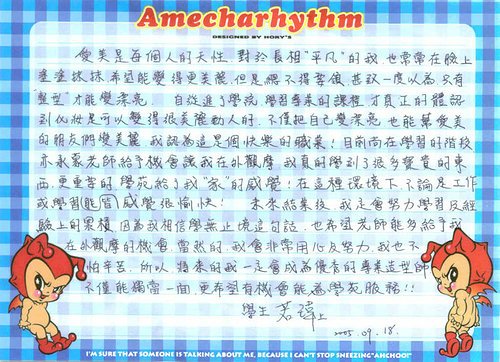 Amecharhythm
DESIGNED BY HORY'S
愛美是每個人的天性.對於長相"平凡"的我也常常在臉上
塗塗抹抹.希望能變得更美麗.但是總不得要領.甚致一度以為只有
"整型"才能變漂亮. 自從進了學苑.學習專業的課程.才真正的體認
到化妝是可以變得很美麗動人的.不僅把自己變漂亮.也能幫愛美
的朋友們變美麗.我認為這是個快樂的職業!目前尚在學習的階段
亦承蒙老師給予機會讓我在外觀摩.我真的學到了很多寶貴的東
西.更重要的.學苑給了我"家"的感覺!在這種環境下.不論是工作
或學習(能皆)感覺很愉快! 未來結業後.我定會努力學習及經
驗上的累積.因為我相信學無止境這句話.也希望老師能多給予我
在外觀摩的機會.當然的.我會非常用心及努力.我也不
怕辛苦.所以.將來的我一定會成為優秀的專業造型師
不僅能獨當一面.更希望有機會能為學苑服務!!
學生 君瑋上
2005.09.18.
I'M SURE THAT SOMEONE IS TALKING ABOUT ME, BECAUSE I CAN'T STOP SNEEZING "AHCHOO!"